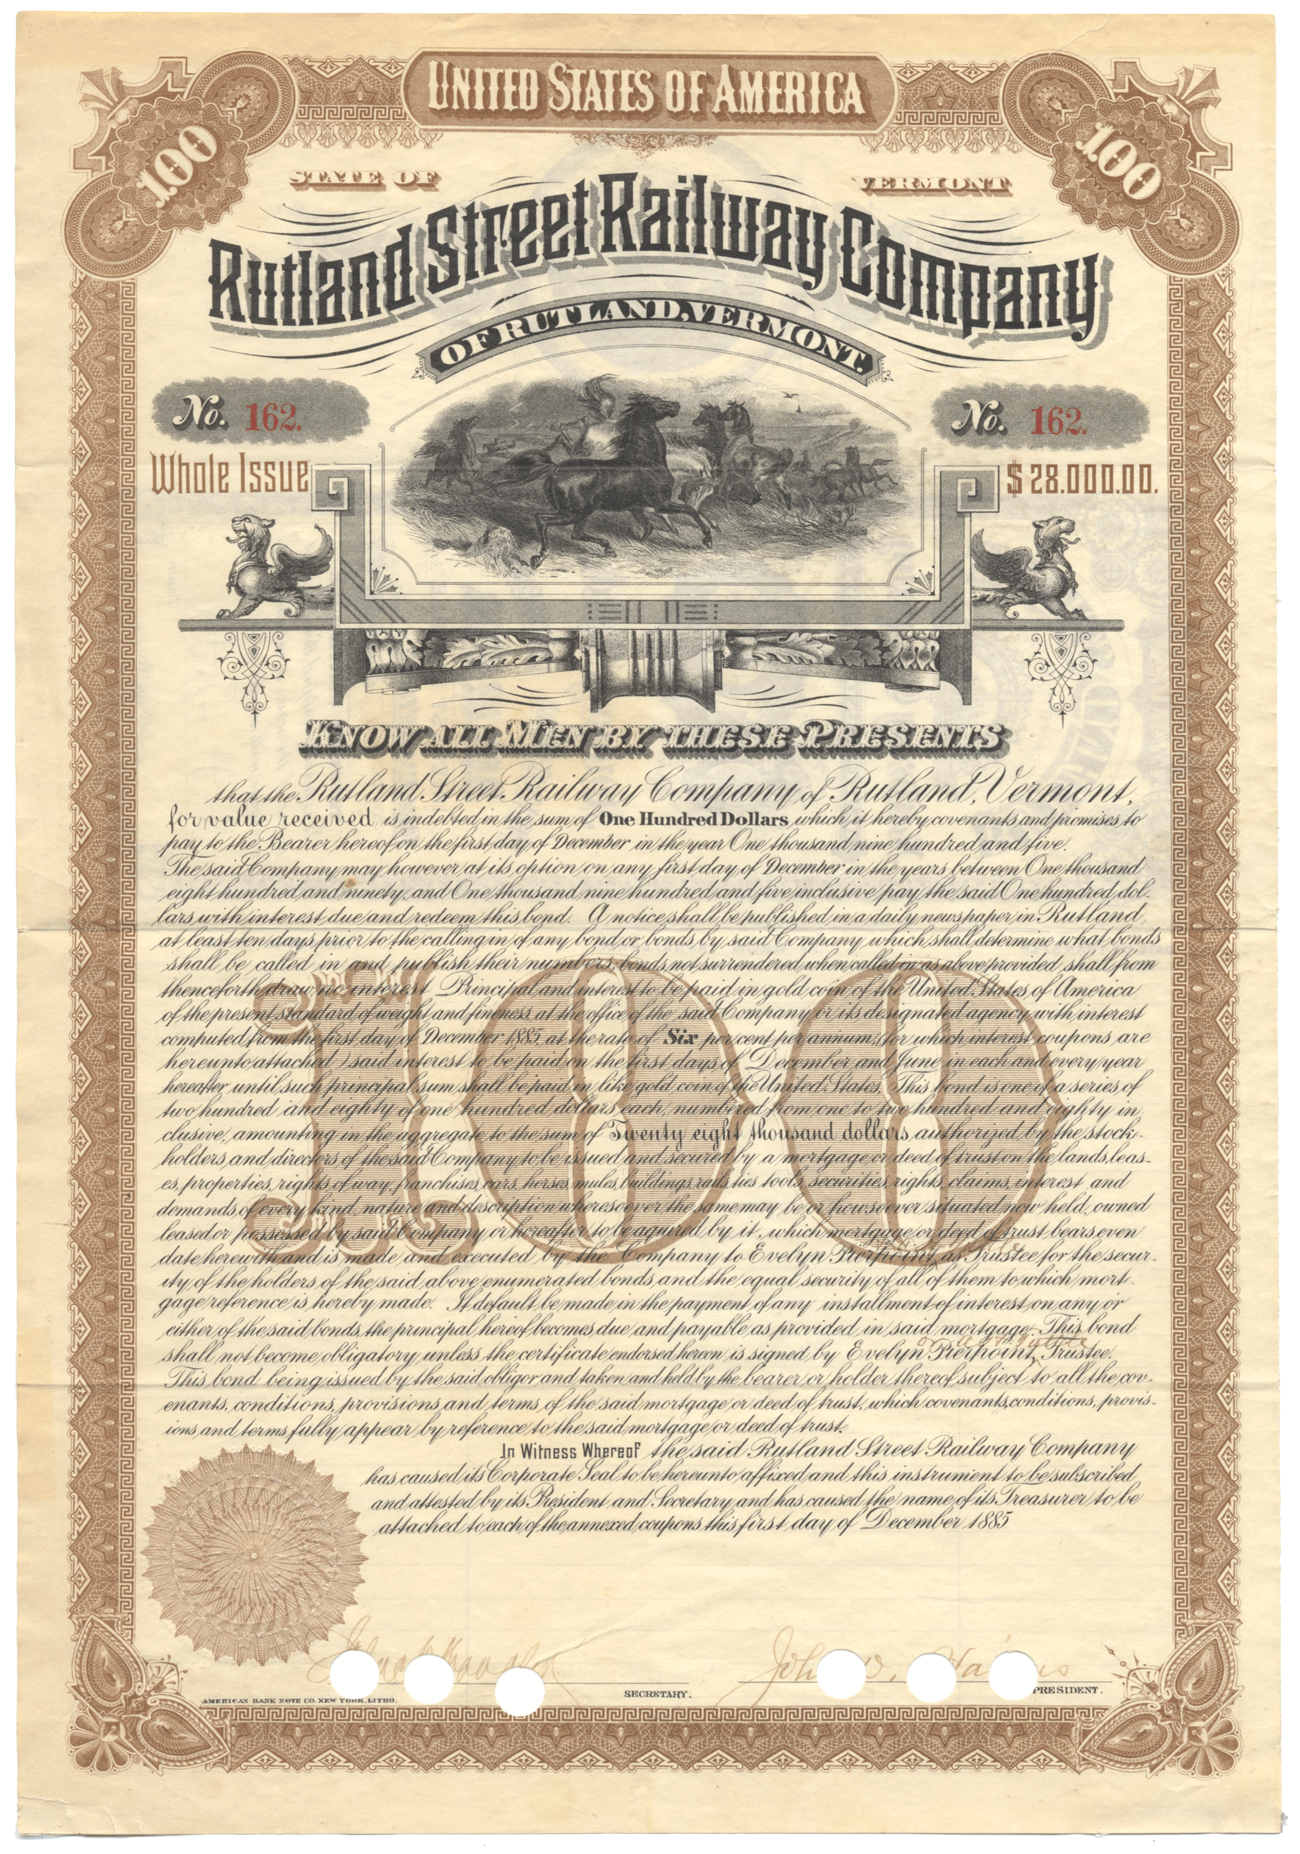 UNITED STATES OF AMERICA
100
100
STATE OF VERMONT
Rutland Street Railway Company
OF RUTLAND, VERMONT.
No. 162.
No. 162.
Whole Issue
$28.000.00.
KNOW ALL MEN BY THESE PRESENTS
that the Rutland Street Railway Company of Rutland, Vermont,
for value received is indebted in the sum of One Hundred Dollars which it hereby covenants and promises to
pay to the Bearer hereof on the first day of December in the year One thousand nine hundred and five.
The said Company may however at its option on any first day of December in the years between One thousand
eight hundred and ninety, and One thousand nine hundred and five inclusive pay the said One hundred dol-
lars with interest due and redeem this bond. A notice shall be published in a daily newspaper in Rutland
at least ten days prior to the calling in of any bond or bonds by said Company which shall determine what bonds
shall be called in and publish their numbers, bonds not surrendered when called in as above provided shall from
thenceforth draw no interest Principal and interest to be paid in gold coin of the United States of America
of the present standard of weight and fineness at the office of the said Company or its designated agency with interest
computed from the first day of December 1885 at the rate of Six per cent per annum (for which interest coupons are
hereunto attached) said interest to be paid on the first days of December and June in each and every year
hereafter until such principal sum shall be paid in like gold coin of the United States. This bond is one of a series of
two hundred and eighty of one hundred dollars each, numbered from one to two hundred and eighty in
clusive, amounting in the aggregate to the sum of Twenty eight thousand dollars authorized by the stock-
holders and directors of the said Company to be issued and secured by a mortgage or deed of trust on the lands, leas-
es, properties, rights of way, franchises, cars, horses, mules, buildings, rails, ties tools, securities, rights, claims, interest and
demands of every kind, nature and description wheresoever the same may be or howsoever situated now held, owned
leased or possessed by said Company or hereafter to be aquired by it, which mortgage or deed of trust bears even
date herewith and is made and executed by the Company to Evelyn Pierpoint as Trustee for the secur-
ity of the holders of the said above enumerated bonds and the equal security of all of them to which mort-
gage reference is hereby made. If default be made in the payment of any installment of interest on any or
either of the said bonds, the principal hereof becomes due and payable as provided in said mortgage. This bond
shall not become obligatory unless the certificate endorsed hereon is signed by Evelyn Pierpoint, Trustee.
This bond being issued by the said obligor and taken and held by the bearer or holder thereof subject to all the cov-
enants, conditions, provisions, and terms of the said mortgage or deed of trust, which covenants, conditions, provis-
ions, and terms, fully appear by reference to the said mortgage or deed of trust.
In Witness Whereof the said Rutland Street Railway Company
has caused its Corporate Seal to be hereunto affixed and this instrument to be subscribed
and attested by its President and Secretary and has caused the name of its Treasurer to be
attached to each of the annexed coupons this first day of December 1885
John W.
SECRETARY.
PRESIDENT.
AMERICAN BANK NOTE CO. NEW YORK. LITHO.